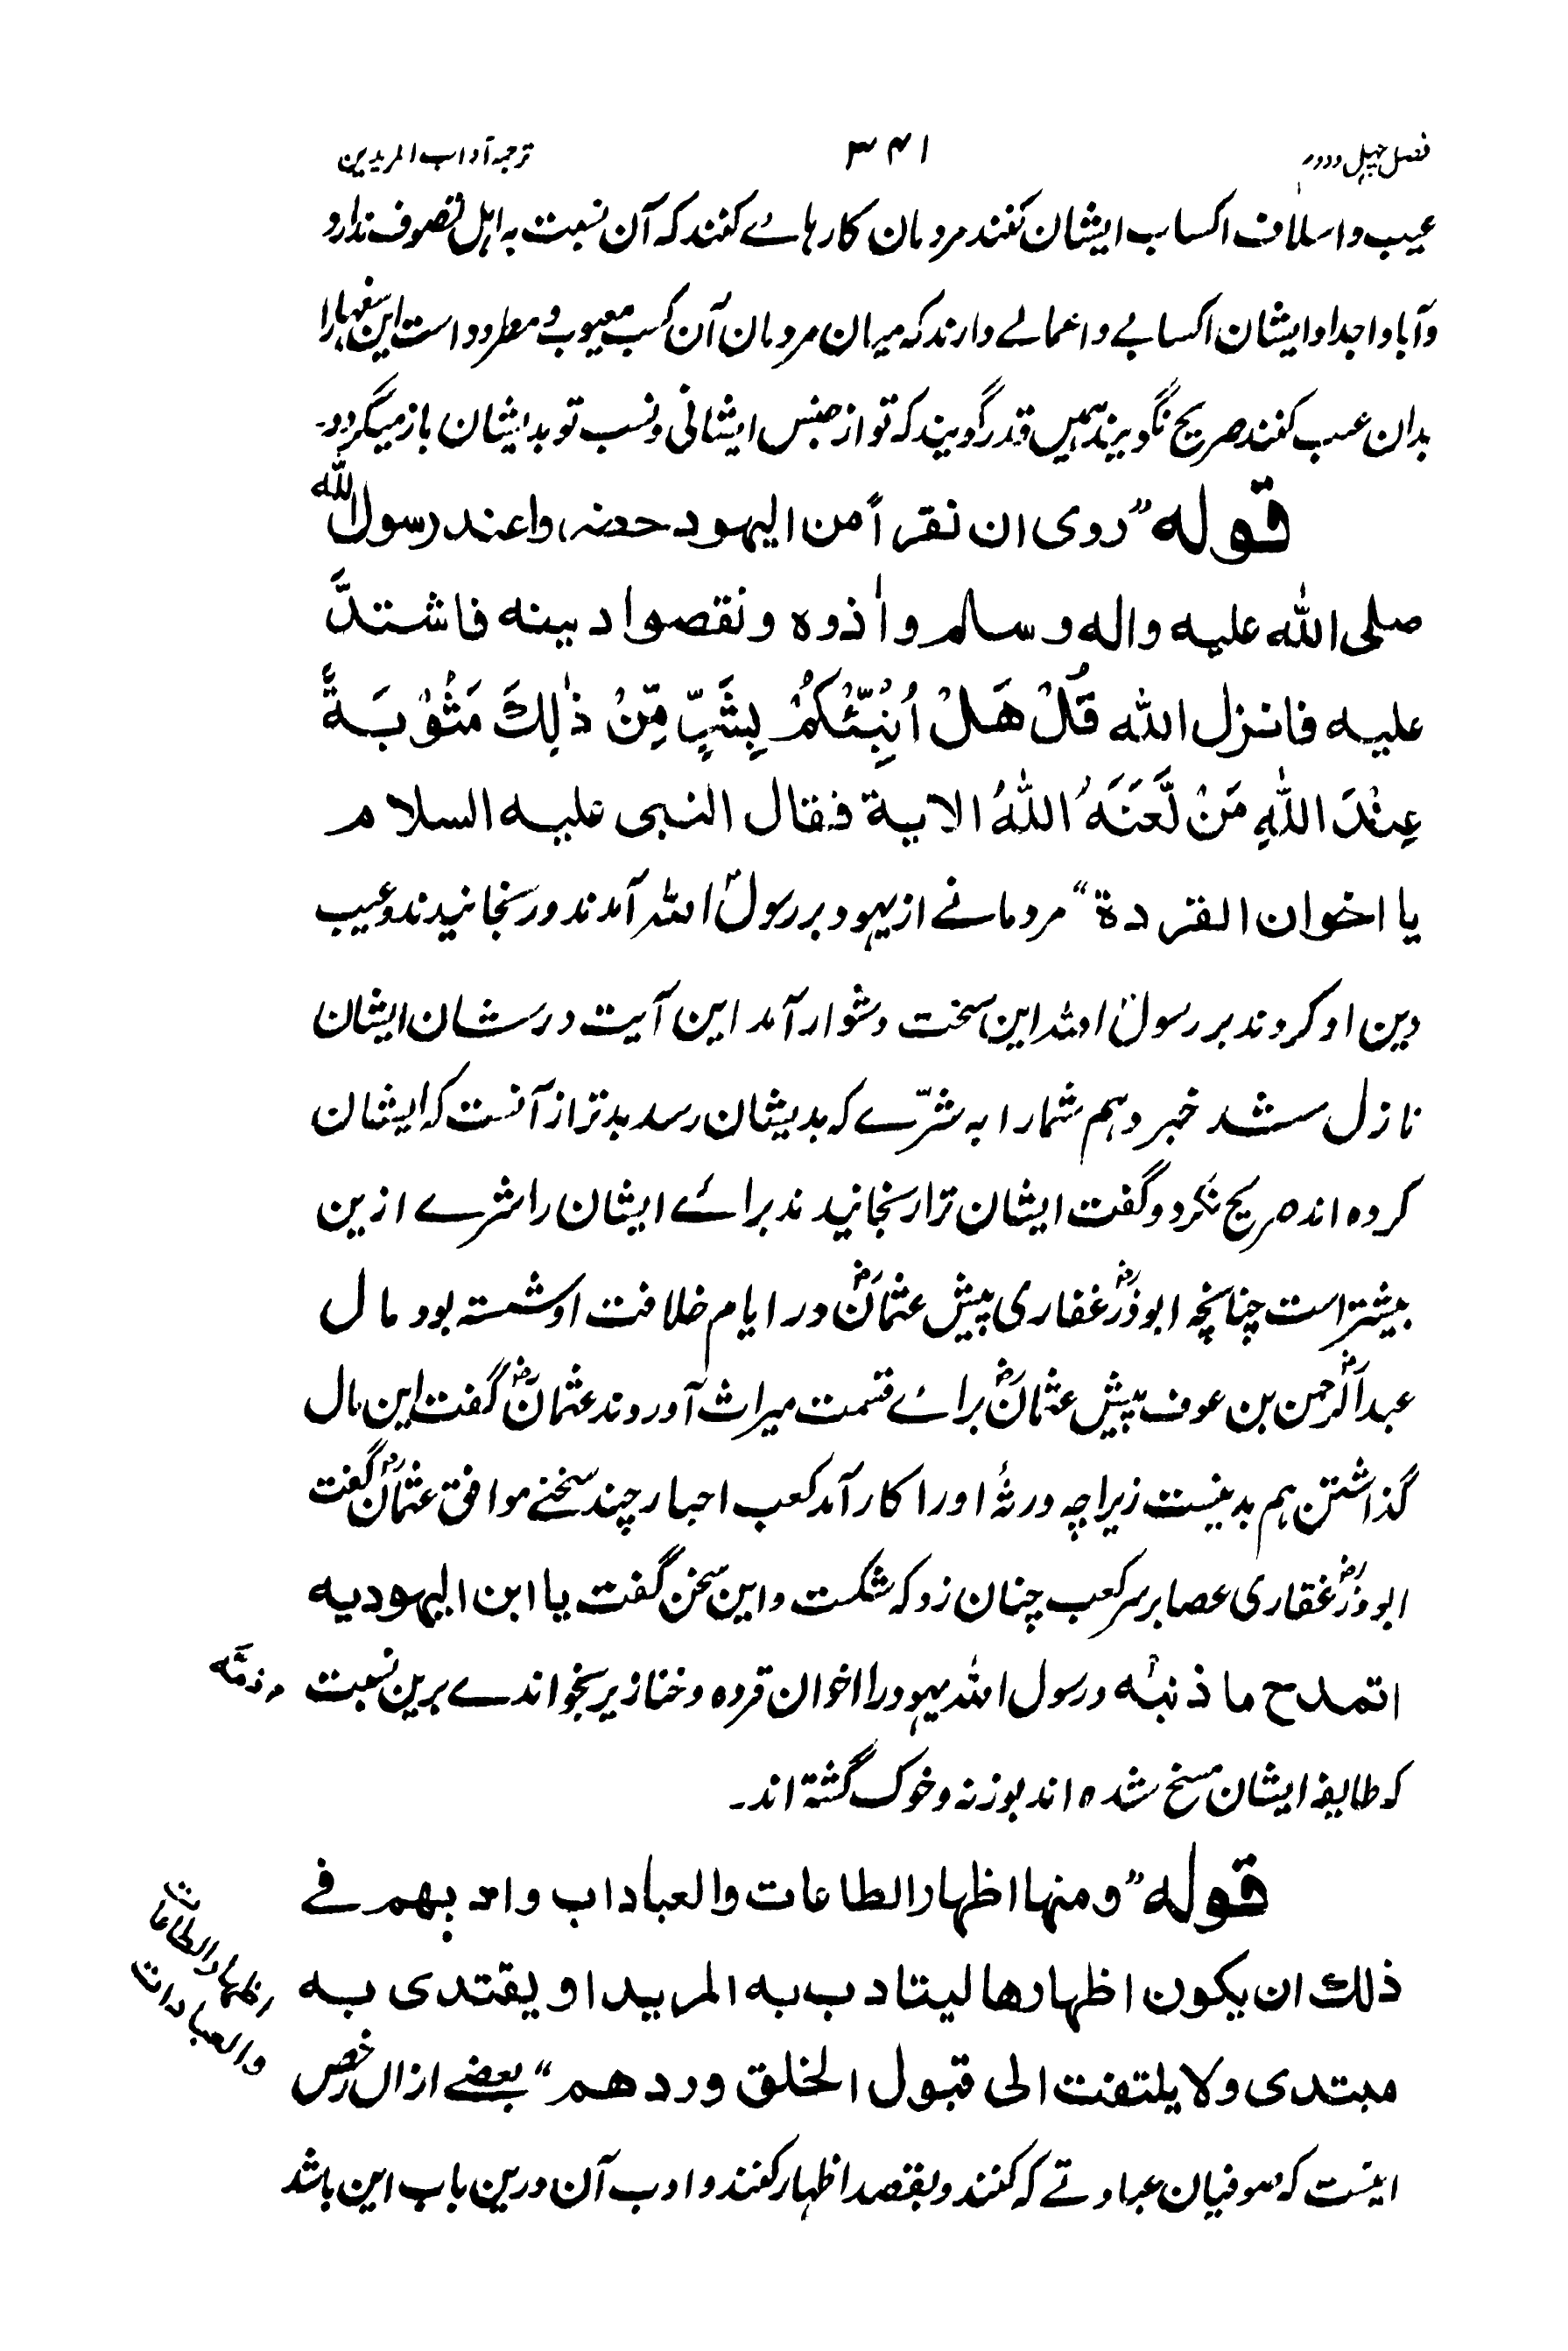 فصل چہل ودوم
۳۴۱
ترجمہ آداب المریدین
عیب و اسلاف اکساب ایشان کنند مردمان کارہاے کنند کہ آن نسبت بہ اہل تصوف ندارد
و آبا و اجداد ایشان اکسابے و اعمالے دارند کہ میان مردمان آن کسب معیوب و مطرود است این سفہا را
بدان عیب کنند صریح نگویند ہمیں قدر گویند کہ تو از جنس ایشانی و نسب تو بدایشان باز میگردد۔
قوله ”روی ان نقراً من الیهود حضروا عند رسول الله
صلی الله علیه واله وسلم واٰذوه ونقصوا دینه فاشتدَّ
علیه فانزل الله قُلْ هَلْ اُنَبِّئُكُمْ بِشَرٍّ مِّنْ ذٰلِكَ مَثُوْبَةً
عِنْدَ اللّٰهِ مَنْ لَّعَنَهُ اللّٰهُ الایة فقال النبی علیه السلام
یا اخوان القردة“ مردمانے از یہود بر رسولؐ اللہ آمدند و رنجانیدند و عیب
دین او کردند بر رسولؐ اللہ این سخت دشوار آمد این آیت در شان ایشان
نازل شد خبر دہم شمارا بہ شرّے کہ بدیشان رسد بدتر از آنست کہ ایشان
کردہ اند صریح نکرد و گفت ایشان ترا رنجانیدند براے ایشان را شرے ازین
بیشتر است چنانچہ ابوذرؓ غفاری پیش عثمانؓ در ایام خلافت او نشستہ بود مال
عبدالرحمنؓ بن عوف پیش عثمانؓ براے قسمت میراث آوردند عثمانؓ گفت این مال
گذاشتن ہم بد نیست زیراچہ ورثۂ اورا کار آمد کعب احبار چند سخنے موافق عثمانؓ گفت
ابوذرؓ غقاری عصا بر سر کعب چنان زد کہ شکست و این سخن گفت یا ابن الیهودیه
اتمدح ما ذنبُه و رسول اللہ یہود را اخوان قردہ و خنازیر بخواندے برین نسبت
کہ طایفہ ایشان مسخ شدہ اند بوزنہ و خوک گشتہ اند۔
قوله ”ومنها اظهار الطاعات والعباداب وادبهم فے
ذلك ان یکون اظهارها لیتادب به المرید او یقتدی به
مبتدی ولا یلتفت الی قبول الخلق وردهم“ بعضے ازان رخص
اینست کہ صوفیان عبادتے کہ کنند و بقصد اظہار کنند و ادب آن درین باب این باشد
ذمّه
اظهار الطاعات
والعبادات